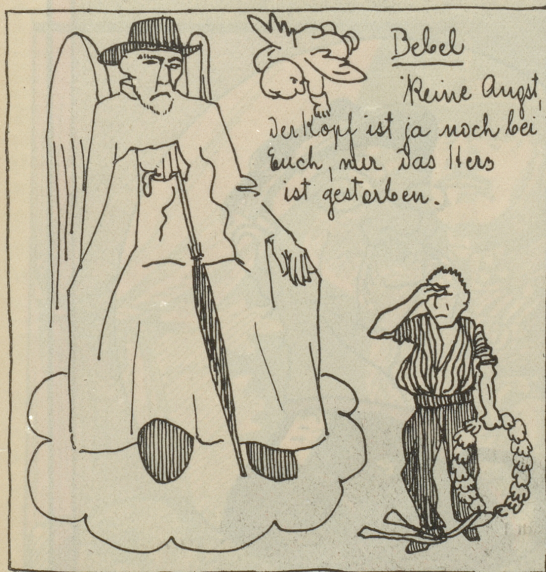 Bebel
Keine Angst,
Der Kopf ist ja noch bei
Euch, nur Das Herz
ist gestorben.